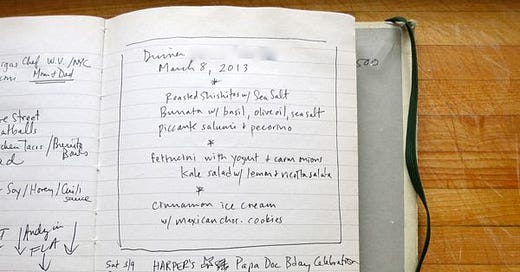 Chef W.V./NYC
Mom & Dad
Street
Tacos / Burrito
Bowls
Soy / Honey / Chili
sauce
Andy in
FLA
Dinner
March 8, 2013
*
Roasted Shishitos w/ Sea Salt
Burrata w/ basil, olive oil, sea salt
piccante salumi + pecorino
*
fettucini with yogurt + caram onions
kale salad w/ lemon + ricotta salata
*
cinnamon ice cream
w/ mexican choc. cookies
Sat 3/9 HARPER'S Papa Doc Bday Celebration